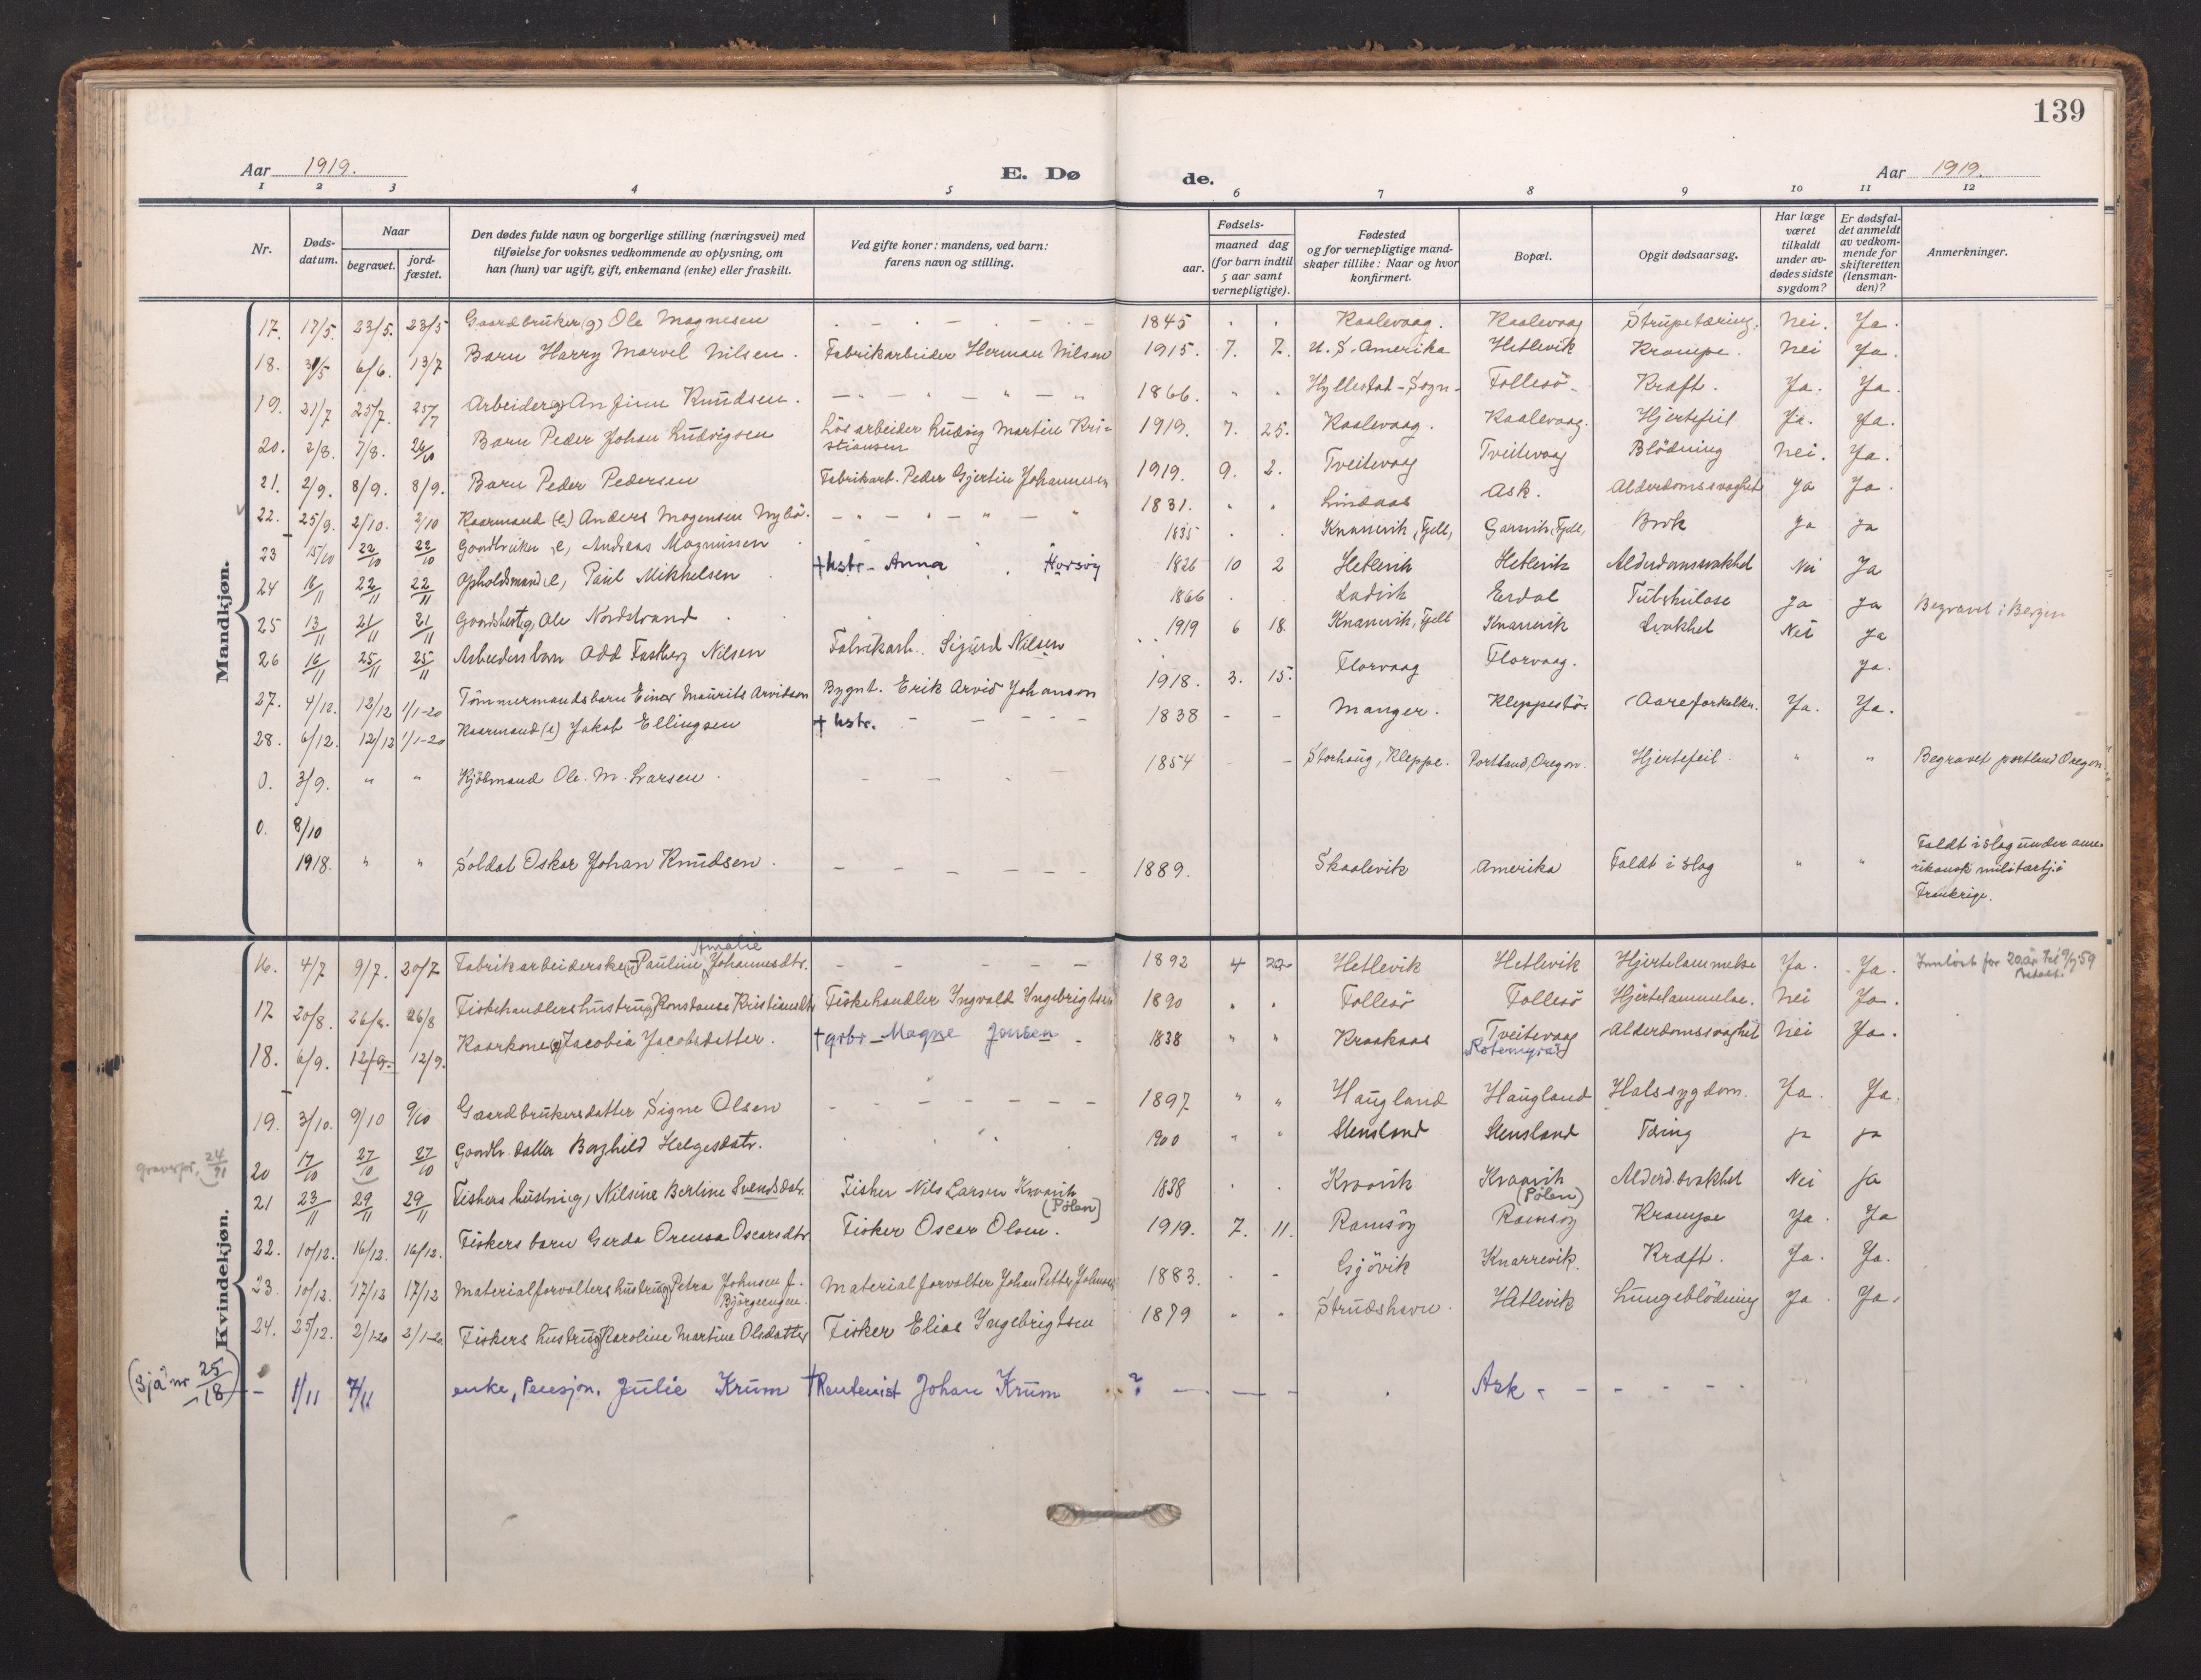 139
Aar 1919. E. Dø de. Aar 1919.
1 2 3 4 5 6 7 8 9 10 11 12
Nr. Døds-datum. Naar begravet. jord-fæstet. Den dødes fulde navn og borgerlige stilling (næringsvei) med tilføielse for voksnes vedkommende av oplysning, om han (hun) var ugift, gift, enkemand (enke) eller fraskilt. Ved gifte koner: mandens, ved barn: farens navn og stilling. Fødsels- aar. maaned dag (for barn indtil 5 aar samt vernepligtige). Fødested og for vernepligtige mand-skaper tillike: Naar og hvor konfirmert. Bopæl. Opgit dødsaarsag. Har læge været tilkaldt under av-dødes sidste sygdom? Er dødsfal-det anmeldt av vedkom-mende for skifteretten (lensman-den)? Anmerkninger.
Mandkjøn.
17. 17/5. 23/5. 23/5 Gaardbruker (g) Ole Magnesen 1845 Kaalevaag. Kaalevaag Strupetæring. Nei. Ja.
18. 31/5 6/6. 13/7 Barn Harry Marvel Nilsen. Fabrikarbeider Herman Nilsen 1915. 7. 7. U. S. Amerika Hetlevik Krampe. Nei Ja.
19. 21/7 25/7. 25/7 Arbeider (g) Anfinn Knudsen. 1866. Hyllestad - Sogn Follesö Kræft. Ja. Ja.
20. 2/8. 7/8. 26/10 Barn Peder Johan Ludvigsen Lösarbeider Ludvig Martin Kri-stiansen 1919. 7. 25. Kaalevaag. Kaalevaag. Hjertefeil Ja. Ja.
21. 2/9. 8/9. 8/9. Barn Peder Pedersen Fabrikarb. Peder Gjertin Johannesen 1919. 9. 2. Tveitevaag Tveitevaag Blödning Nei. Ja.
22. 25/9. 2/10. 2/10 Kaarmand (e) Anders Mogensen Nybö. 1831. Lindaas Ask. Alderdomssvaghet Ja Ja.
23 15/10 22/10 22/10 Gaardbruker e, Andreas Magnussen 1835 Knarrevik, Fjell, Garsvik, Fjell, Brok Ja Ja
24 16/11 22/11 22/11 Opholdsmand e, Paul Mikkelsen + hstr. Anna Horsvig 1826 10 2 Hetlevik Hetlevik Alderdomssvakhet Nei Ja
25 13/11 21/11 21/11 Gaardsbest g, Ole Nordstrand 1866 Ladvik Erdal Tuberkulose Ja Ja Begravet i Bergen
26 16/11 25/11 25/11 Arbeiders barn Odd Fastberg Nilsen Fabrikarb. Sigurd Nilsen 1919 6 18. Knarrevik, Fjell Knarrevik Svakhet Nei Ja
27. 4/12. 12/12 1/1-20 Tömmermandsbarn Einar Maurits Arvidson Bygnt. Erik Arvid Johanson 1918. 3. 15. Florvaag Florvaag. Ja.
28. 6/12. 12/12 1/1-20 Kaarmand (e) Jakob Ellingsen + hstr. 1838 Manger. Kleppestö. Aareforkalkn. Ja. Ja.
0. 3/9. " " Kjöbmand Ole. M. Larsen. 1854 Storhaug, Kleppe. Portland, Oregon. Hjertefeil " " Begravet portland Oregon
0. 8/10
1918. " " Soldat Oskar Johan Knudsen. 1889. Skaalevik Amerika Faldt i slag " " Faldt i slag under ame-rikansk militærtj. i Frankrige.
Kvindekjøn.
16. 4/7 9/7. 20/7 Fabrikarbeiderske (u) Pauline Amalie Johannesdtr. 1892 4 22 Hetlevik Hetlevik Hjertelammelse Ja. Ja. Innløst for 20 år til 9/7 59 betalt.
17 20/8. 26/8. 26/8 Fiskehandlers hustru (g) Konstanse Kristiansdtr Fiskehandler Ingvald Ingebrigtsen 1890 Follesö Follesö Hjertelammelse. Nei Ja.
18. 6/9. 12/9. 12/9. Kaarkone (e) Jacobia Jacobsdatter. + grbr. Magne Jonsen 1838 " " Kraakaas Tveitevaag Rotemyra Alderdomssvaghet Nei Ja.
19. 3/10. 9/10 9/10 Gaardbrukersdatter Signe Olsen 1897 " " Haugland Haugland Halssygdom. Ja. Ja.
graverpr. 24/91
20 17/10 27/10 27/10 Gaardbr. datter Borghild Helgesdatr. 1900 " " Stensland Stensland Tæring Ja Ja
21 23/11 29/11 29/11 Fiskers hustru g, Nilsine Berline Svendsdtr. Fisker Nils Larsen Kraavik (Pölen) 1838 Kraavik Kraavik (Pölen) Alderd.svakhet Nei Ja
22. 10/12. 16/12. 16/12. Fiskers barn Gerda Orensa Oscarsdtr Fisker Oscar Olsen. 1919. 7. 11. Ramsöy Ramsöy Krampe Ja. Ja
23. 10/12. 17/12 17/12 Materialforvalters hustru (g) Petra Johnsen f. Björgeengen. Materialforvalter Johan Petter Johnsen 1883. Gjövik Knarrevik. Kræft. Ja. Ja.
24. 25/12. 2/1-20 2/1-20. Fiskers hustru (g) Karoline Martine Olsdatter Fisker Elias Ingebrigtsen 1879 " " Strudshavn. Hetlevik Lungeblödning Ja Ja.
(Sjå nr 25/18) - 1/11 7/11 enke, Pensjon. Julie Krum † Rentenist Johan Krum ? Ask